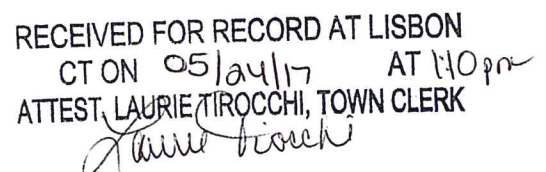 RECEIVED FOR RECORD AT LISBON
CT ON 05/24/17 AT 1:10 pm
ATTEST, LAURIE TIROCCHI, TOWN CLERK
Laurie Tirocchi